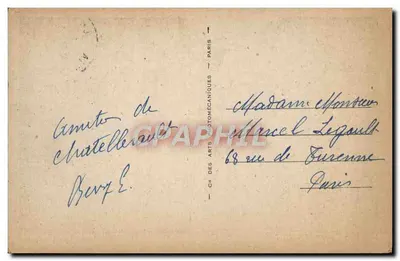 Amitiés de
Chatellerault
CIE DES ARTS PHOTOMÉCANIQUES — PARIS
Madame Monsieur
Marcel Legault
68 rue de Turenne
Paris
CPAPHIL